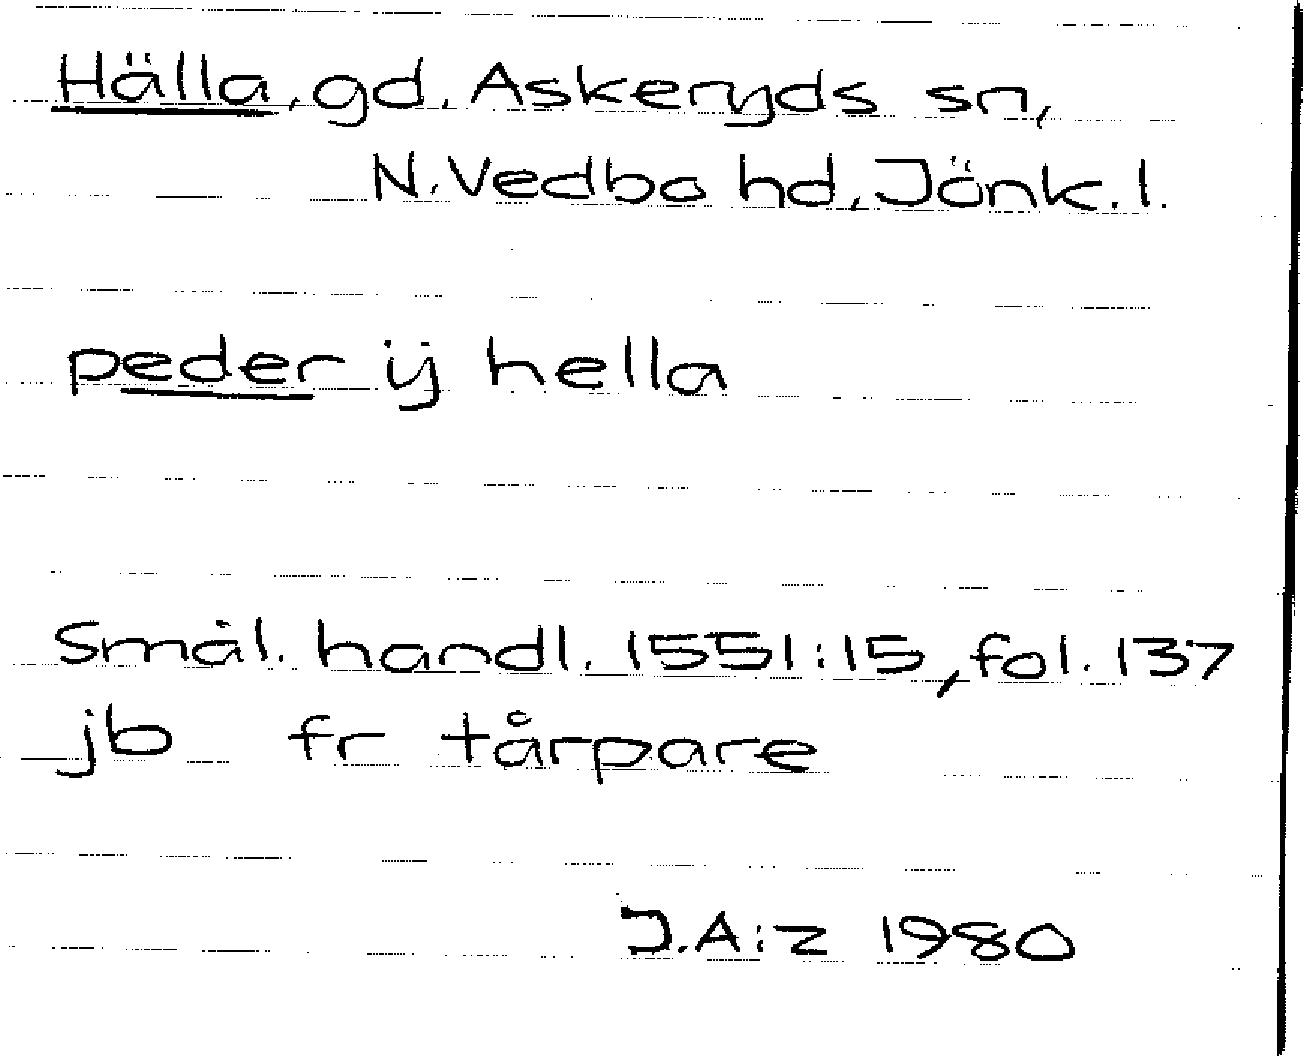 Hälla, gd, Askeryds sn,
N. Vedbo hd, Jönk. l.
peder ij hella
Smål. handl. 1551:15, fol. 137
jb fr tårpare
J.A:z 1980